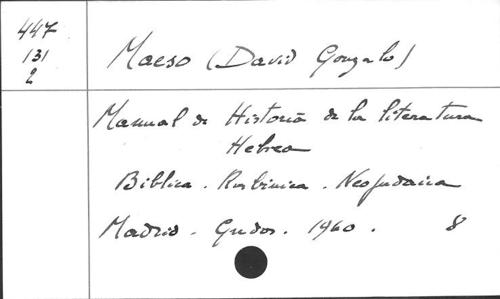 447
131
2
Maeso (David Gonzalo)
Manual de Historia de la literatura
Hebrea
Biblica. Rabinica. Neojudaica
Madrid. Gredos. 1960. 8